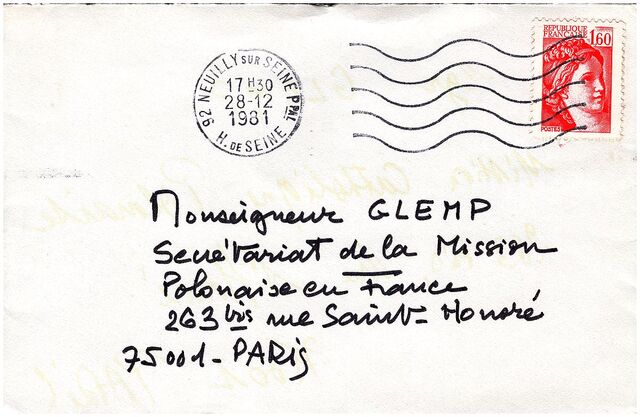 REPUBLIQUE
FRANCAISE
1,60
POSTES
92 NEUILLY SUR SEINE PPAL
17H30
28-12
1981
H. DE SEINE
Monseigneur GLEMP
Secrétariat de la Mission
Polonaise en France
263 bis rue Saint-Honoré
75001-PARIS